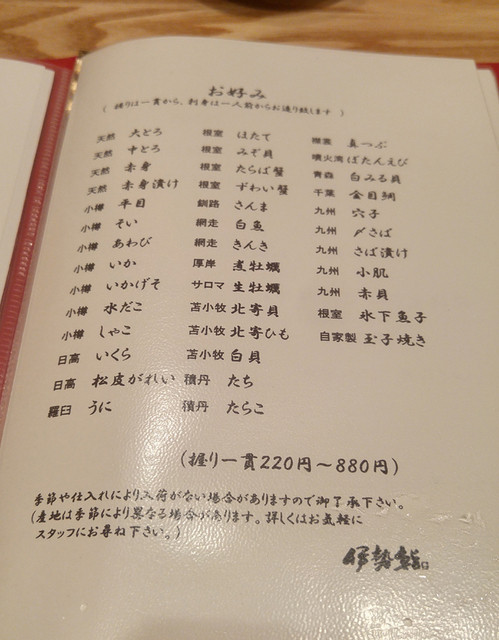 お好み
(握りは一貫から、刺身は一人前からお造り致します)
天然 大とろ
天然 中とろ
天然 赤身
天然 赤身漬け
小樽 平目
小樽 そい
小樽 あわび
小樽 いか
小樽 いかげそ
小樽 水だこ
小樽 しゃこ
日高 いくら
日高 松皮がれい
羅臼 うに
根室 ほたて
根室 みぞ貝
根室 たらば蟹
根室 ずわい蟹
釧路 さんま
網走 白魚
網走 きんき
厚岸 煮牡蠣
サロマ 生牡蠣
苫小牧 北寄貝
苫小牧 北寄ひも
苫小牧 白貝
積丹 たち
積丹 たらこ
真つぶ
噴火湾 ぼたんえび
青森 白みる貝
千葉 金目鯛
九州 穴子
九州 〆さば
九州 さば漬け
九州 小肌
九州 赤貝
根室 氷下魚子
自家製 玉子焼き
(握り一貫220円～880円)
季節や仕入れにより入荷がない場合がありますので御了承下さい。
(産地は季節により異なる場合があります。詳しくはお気軽に
スタッフにお尋ね下さい。)
伊勢鮨